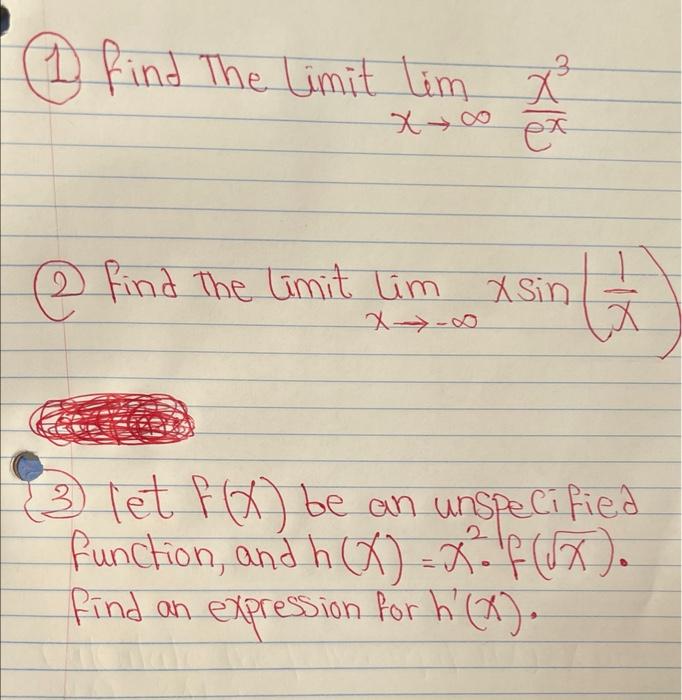 ① find The limit lim x→∞ x³/eˣ
② find The limit lim x→-∞ x sin(1/x)
③ let f(x) be an unspecified
function, and h(x) = x²·f(√x).
find an expression for h'(x).